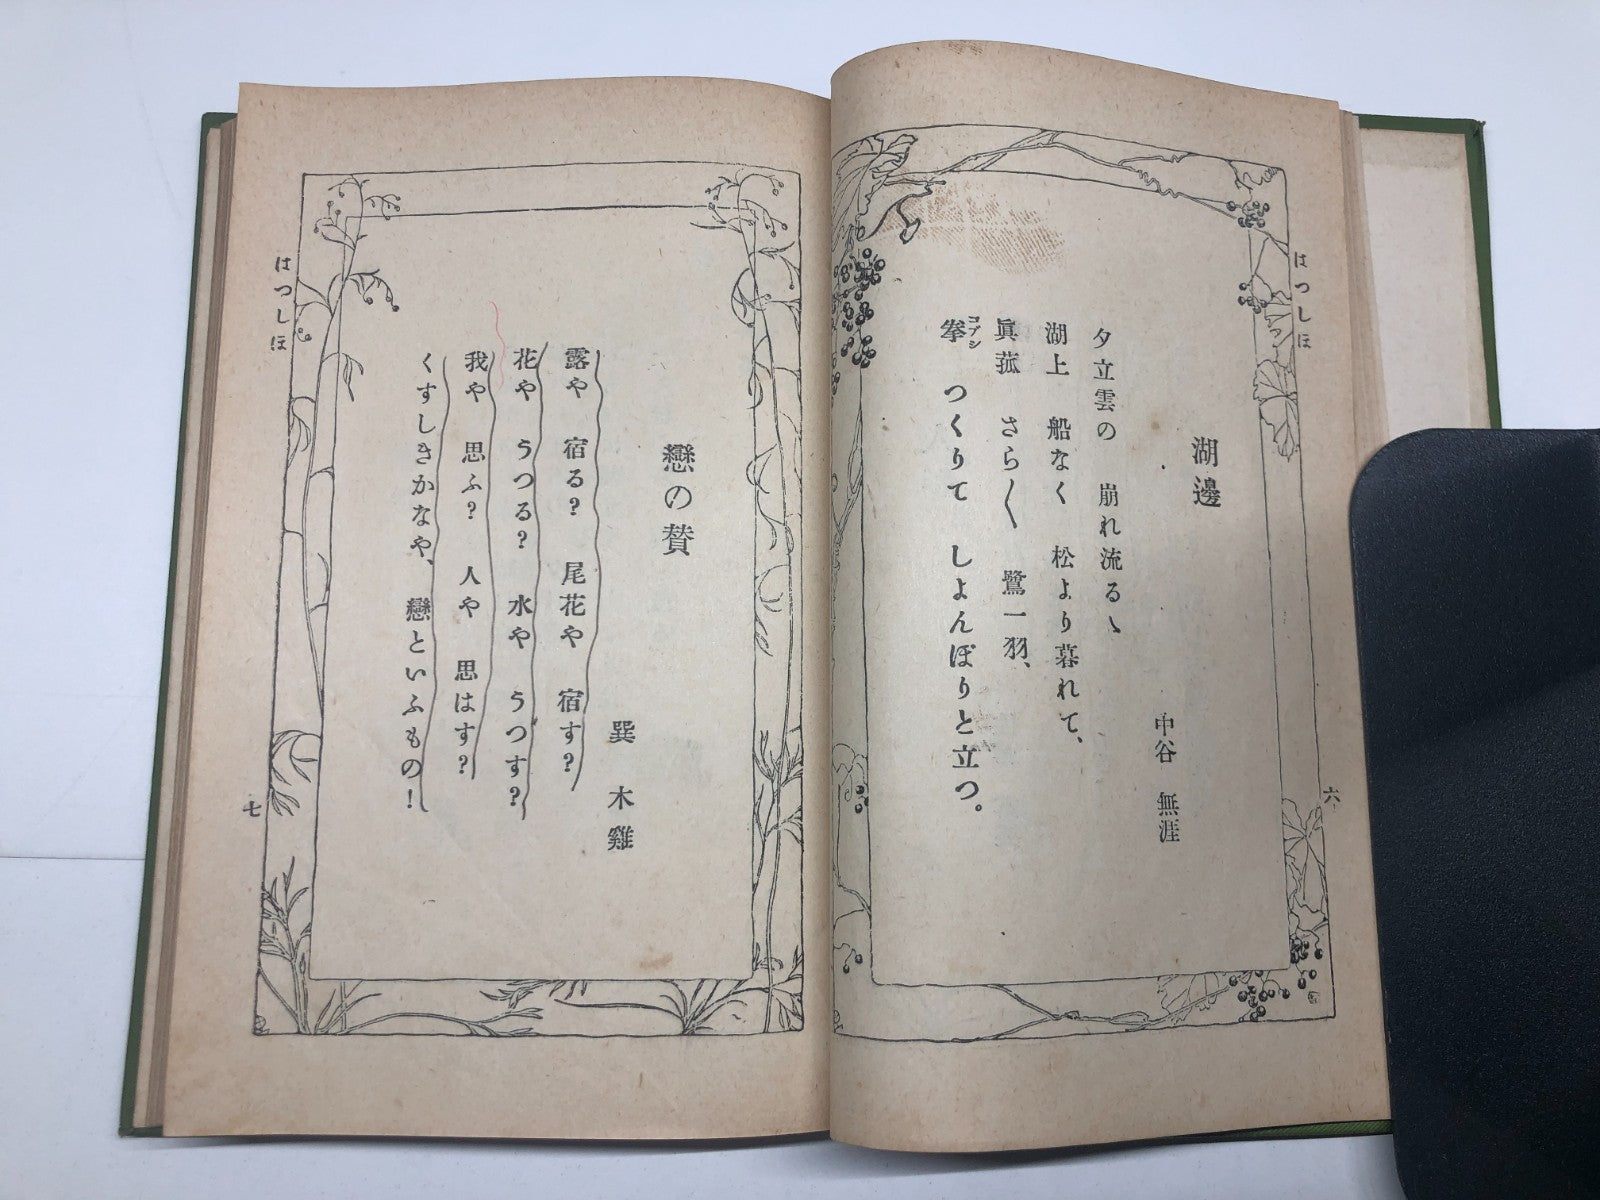 はつしほ
六
湖邊
中谷 無涯
夕立雲の 崩れ流るゝ
湖上 船なく 松より暮れて、
眞菰 さら〱 鷺一羽、
拳 つくりて しよんぼりと立つ。
コブシ
戀の賛
巽 木雞
露や 宿る? 尾花や 宿す?
花や うつる? 水や うつす?
我や 思ふ? 人や 思はす?
くすしきかなや、戀といふもの!
はつしほ
七